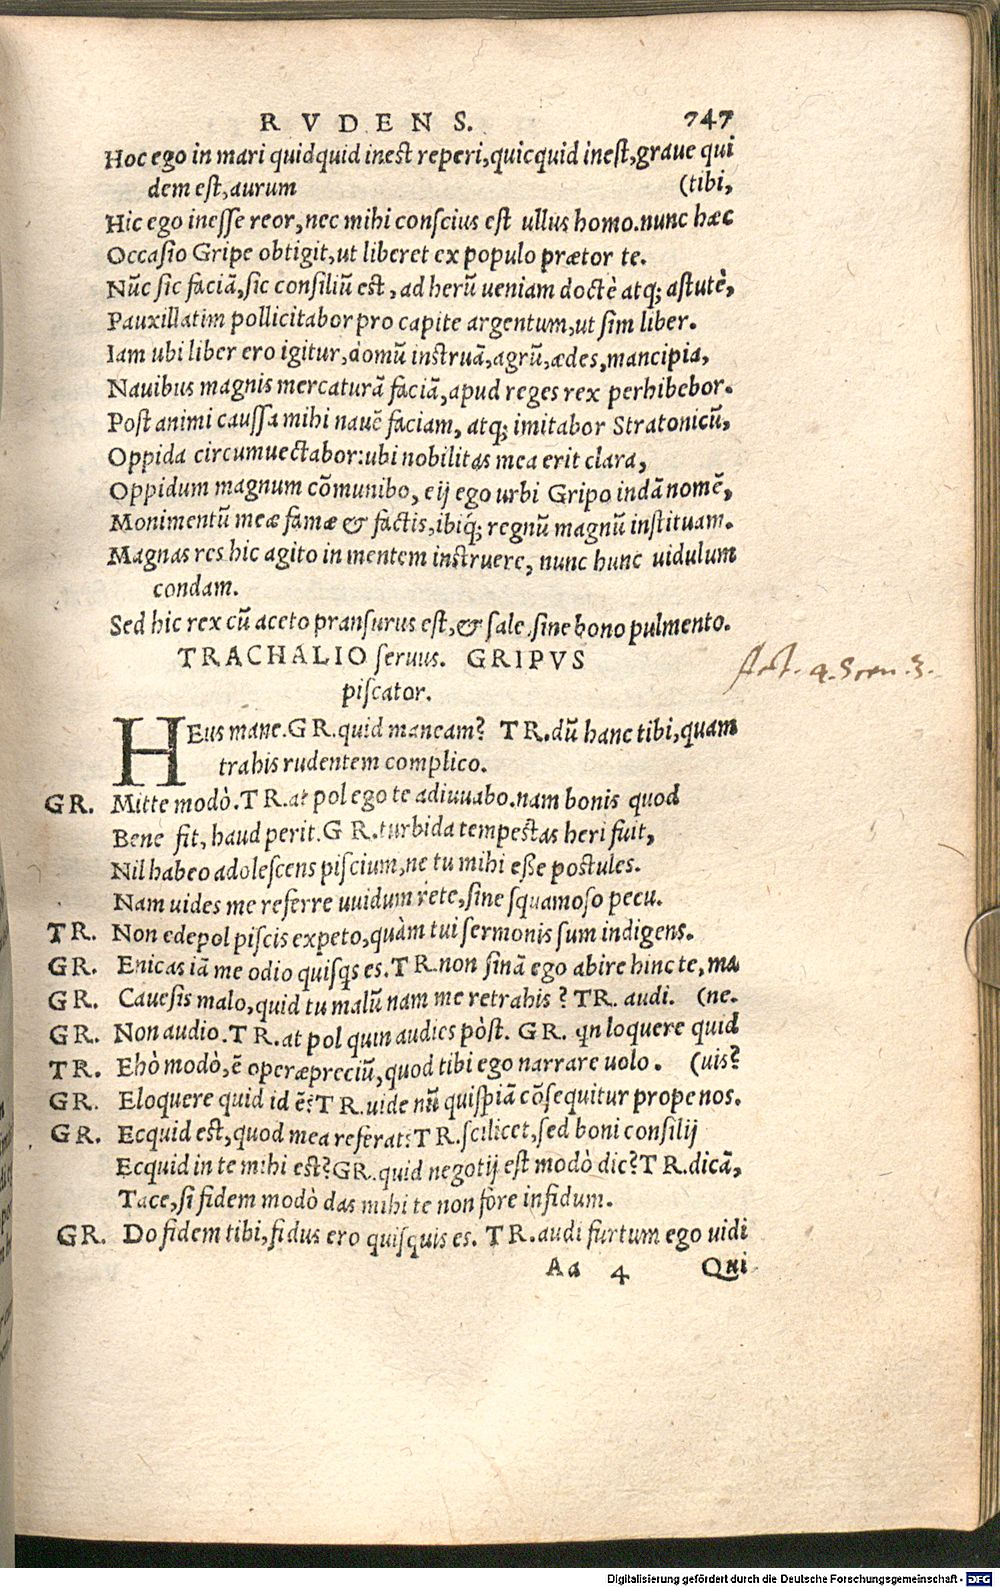 RVDENS. 747
Hoc ego in mari quidquid inest reperi, quicquid inest, graue qui
dem est, aurum (tibi,
Hic ego inesse reor, nec mihi conscius est ullus homo. nunc hæc
Occasio Gripe obtigit, ut liberet ex populo prætor te.
Nūc sic faciā, sic consiliū est, ad herū ueniam doctè atq; astutè,
Pauxillatim pollicitabor pro capite argentum, ut sim liber.
Iam ubi liber ero igitur, domū instruā, agrū, ædes, mancipia,
Nauibus magnis mercaturā faciā, apud reges rex perhibebor.
Post animi caussa mihi nauē faciam, atq; imitabor Stratonicū,
Oppida circumuectabor: ubi nobilitas mea erit clara,
Oppidum magnum cōmunibo, eij ego urbi Gripo indā nomē,
Monimentū meæ famæ & factis, ibiq́; regnū magnū instituam.
Magnas res hic agito in mentem instruere, nunc hunc uidulum
condam.
Sed hic rex cū aceto pransurus est, & sale, sine bono pulmento.
TRACHALIO seruus. GRIPVS
piscator.
HEus mane. GR. quid maneam? TR. dū hanc tibi, quam
trahis rudentem complico.
GR. Mitte modò. TR. at pol ego te adiuuabo. nam bonis quod
Bene fit, haud perit. GR. turbida tempestas heri fuit,
Nil habeo adolescens piscium, ne tu mihi esse postules.
Nam uides me referre uuidum rete, sine squamoso pecu.
TR. Non edepol piscis expeto, quàm tui sermonis sum indigens.
GR. Enicas iā me odio quisqs es. TR. non sinā ego abire hinc te, ma
GR. Cauesis malo, quid tu malū nam me retrahis? TR. audi. (ne.
GR. Non audio. TR. at pol quin audies pòst. GR. qn loquere quid
TR. Ehò modò, ē operæpreciū, quod tibi ego narrare uolo. (uis?
GR. Eloquere quid id ē? TR. uide nū quispiā cōsequitur prope nos.
GR. Ecquid est, quod mea referat? TR. scilicet, sed boni consilij
Ecquid in te mihi est? GR. quid negotij est modò dic? TR. dicā,
Tace, si fidem modò das mihi te non fore infidum.
GR. Do fidem tibi, fidus ero quisquis es. TR. audi furtum ego uidi
Aa 4 Qui
Act. 4. Scen. 3.
Digitalisierung gefördert durch die Deutsche Forschungsgemeinschaft - DFG